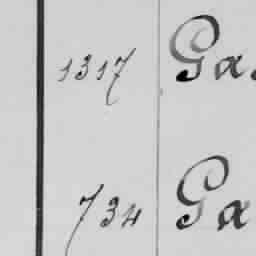 1317 Ga
734 Ga